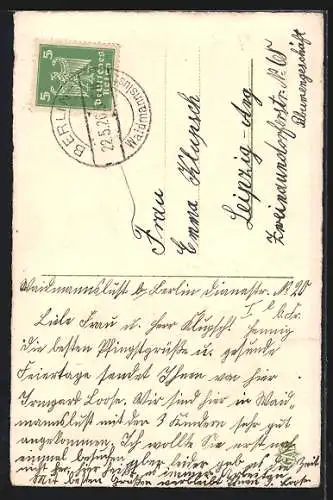 5 5
Deutsches
Reich
BERLIN
22.5.26
Waidmannslust
Frau
Emma Klugsch
Leipzig-Ang
Zweinaundorferstr. No 65
Blumengeschäft
Waidmannslust b. Berlin Dianastr. No 20
Liebe Frau u. Herr Klugsch!
die besten Pfingstgrüße u. gesunde
Feiertage sendet Ihnen von hier
Irmgard Loose. Wir sind hier in Waid-
mannslust mit den 3 Kindern sehr gut
angekommen. Ich wollte Sie erst noch
einmal besuchen aber leider gab es die Zeit
nicht her
Mit besten Grüßen verbleibt Loose